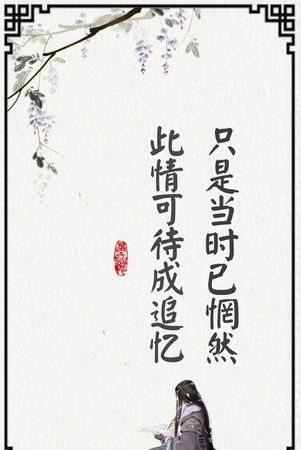 只是当时已惘然
此情可待成追忆